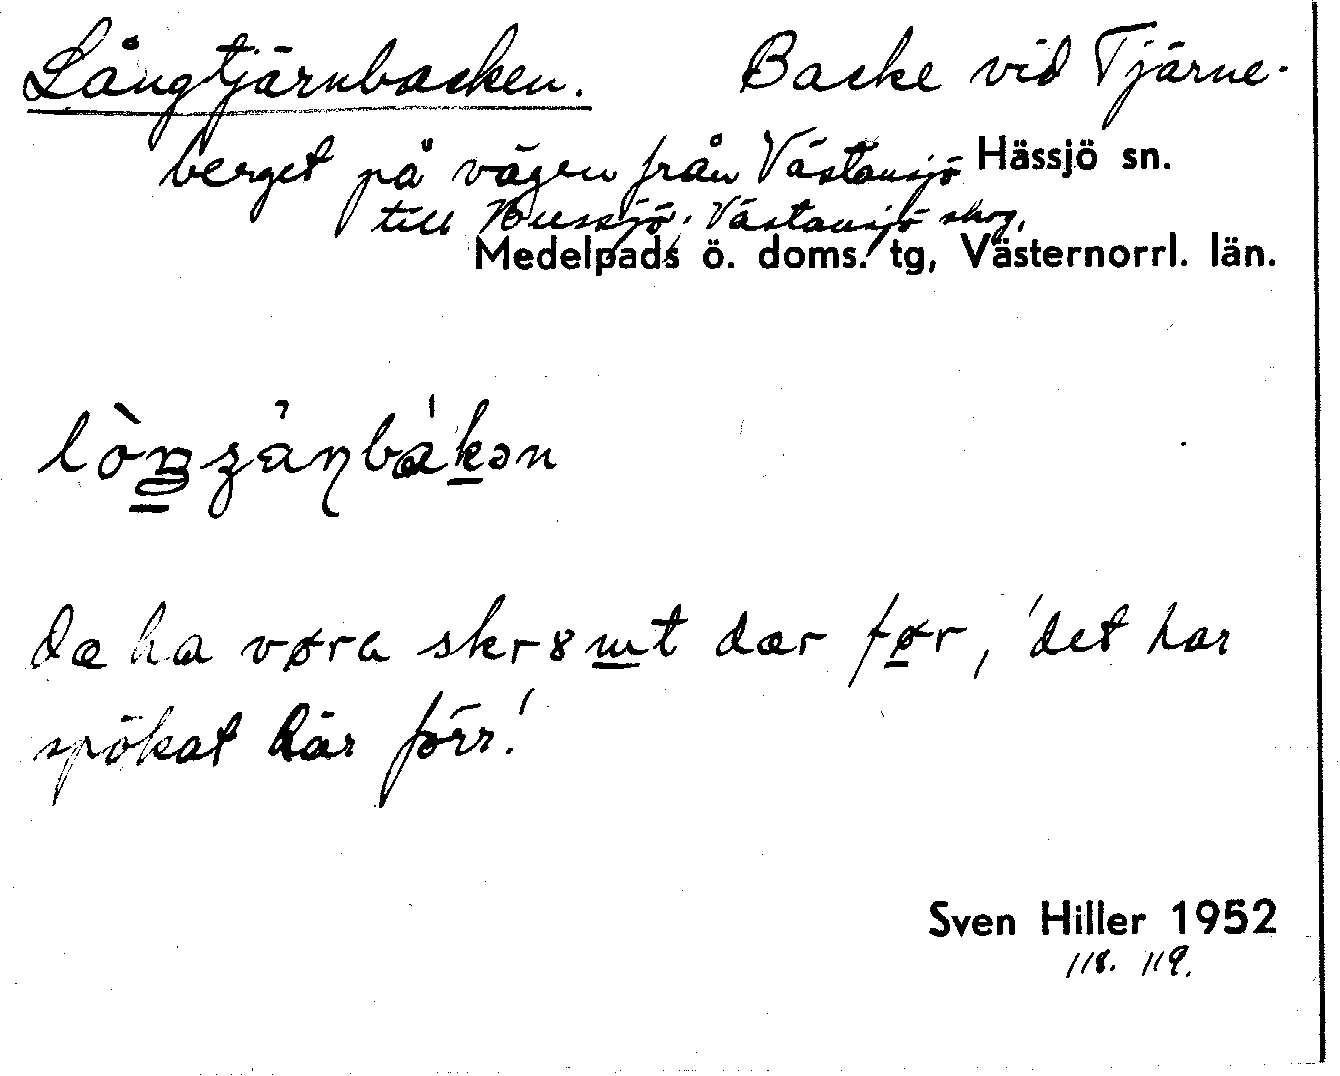 Långtjärnbacken. Backe vid Tjärne-
berget på vägen från Västansjö Hässjö sn.
till Bussjö. Västansjö skog,
Medelpads ö. doms. tg, Västernorrl. län.
da ha vøra skr8mt dær før, 'det har
spökat där förr.'
Sven Hiller 1952
118. 119.